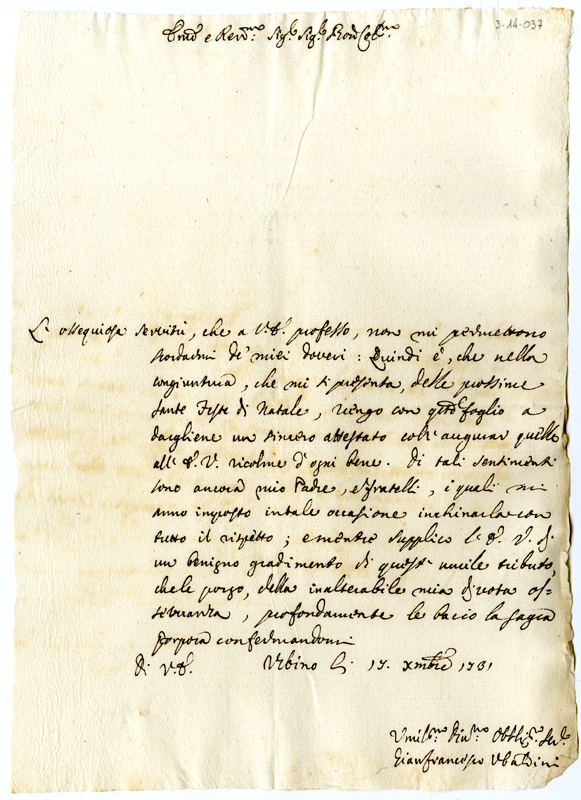 3-14-037
Em̃o e Rev.mo Sig.r Sig.r Pron Col.mo
L'ossequiosa servitù, che a V.E. professo, non mi permettono
scordarmi de' miei doveri: Quindi è, che nella
congiuntura, che mi si presenta, delle prossime
sante Feste di Natale, vengo con q̃to foglio a
dargliene un sincero attestato coll'augurar quelle
all'E.V. ricolme d'ogni bene. Di tali sentimenti
sono ancora mio Padre, e fratelli, i quali mi
anno imposto in tale occasione inchinarla con
tutto il rispetto; e mentre supplico l'E.V. di
un benigno gradimento di questo umile tributo,
che le porgo, della inalterabile mia divota os=
servanza, profondamente le bacio la sagra
porpora confermandomi
Di V.E. Urbino li 17. Xmbre 1731
Umil.mo Div.mo Obblig.mo Ser.e
Gianfrancesco Ubaldini